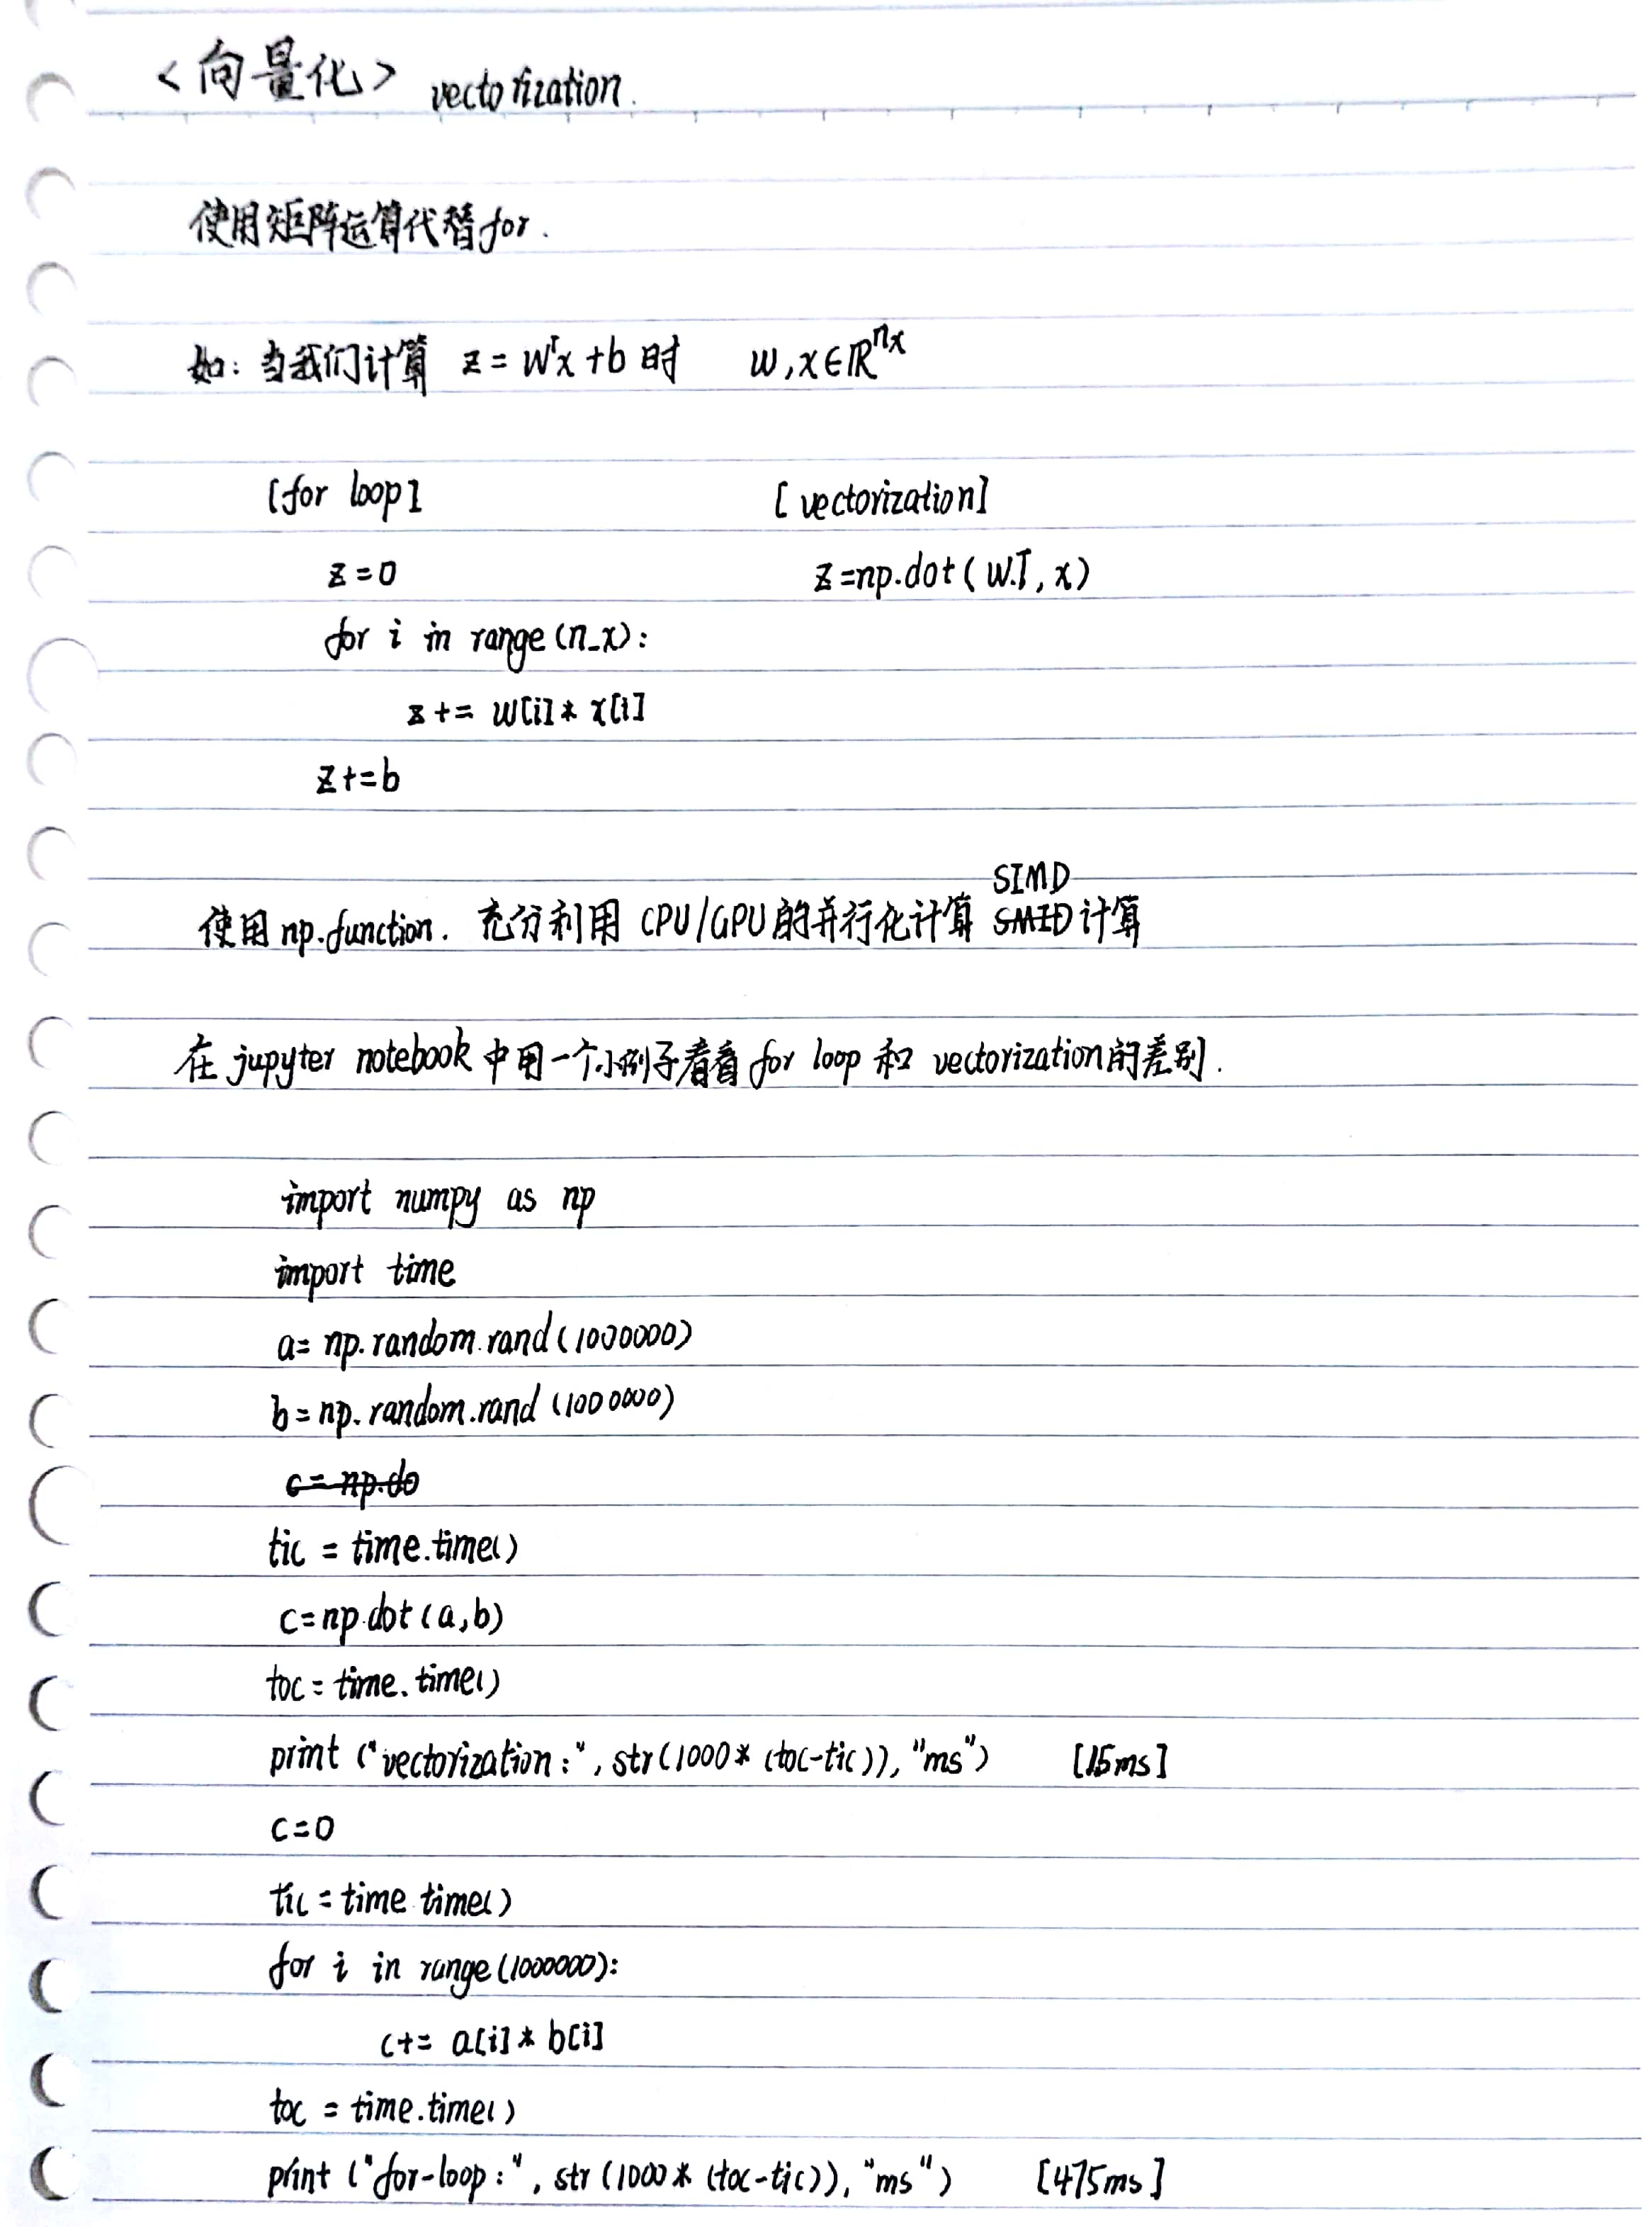 <向量化> vectorization.
使用矩阵运算代替for.
如: 当我们计算 z = wᵀx + b 时 w, x ∈ ℝⁿˣ
[for loop] [vectorization]
z = 0 z = np.dot(w.T, x)
for i in range(n_x):
z += w[i] * x[i]
z += b
SIMD
使用 np.function. 充分利用 CPU/GPU 的并行化计算 SMID 计算
在 jupyter notebook 中用一个小例子看看 for loop 和 vectorization 的差别.
import numpy as np
import time
a = np.random.rand(1000000)
b = np.random.rand(1000000)
c = np.do
tic = time.time()
c = np.dot(a,b)
toc = time.time()
print ("vectorization:", str(1000 * (toc-tic)), "ms") [15ms]
c = 0
tic = time.time()
for i in range(1000000):
c += a[i] * b[i]
toc = time.time()
print ("for-loop:", str(1000 * (toc-tic)), "ms") [475ms]